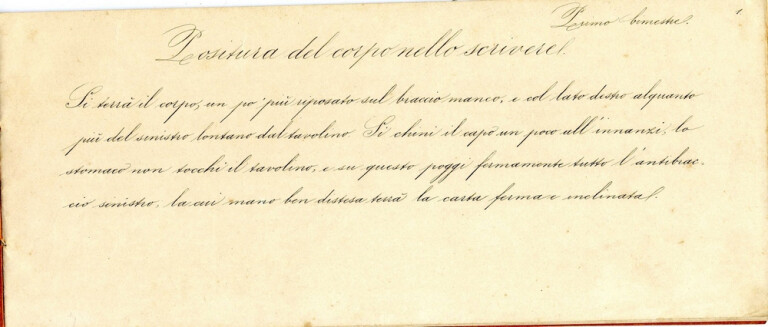 Primo bimestre.
1.
Positura del corpo nello scrivere.
Si terrà il corpo, un po' più riposato sul braccio manco, e col lato destro alquanto
più del sinistro lontano dal tavolino Si chini il capo un poco all'innanzi, lo
stomaco non tocchi il tavolino, e su questo poggi fermamente tutto l'antibrac-
cio sinistro, la cui mano ben distesa terrà la carta ferma e inclinata.